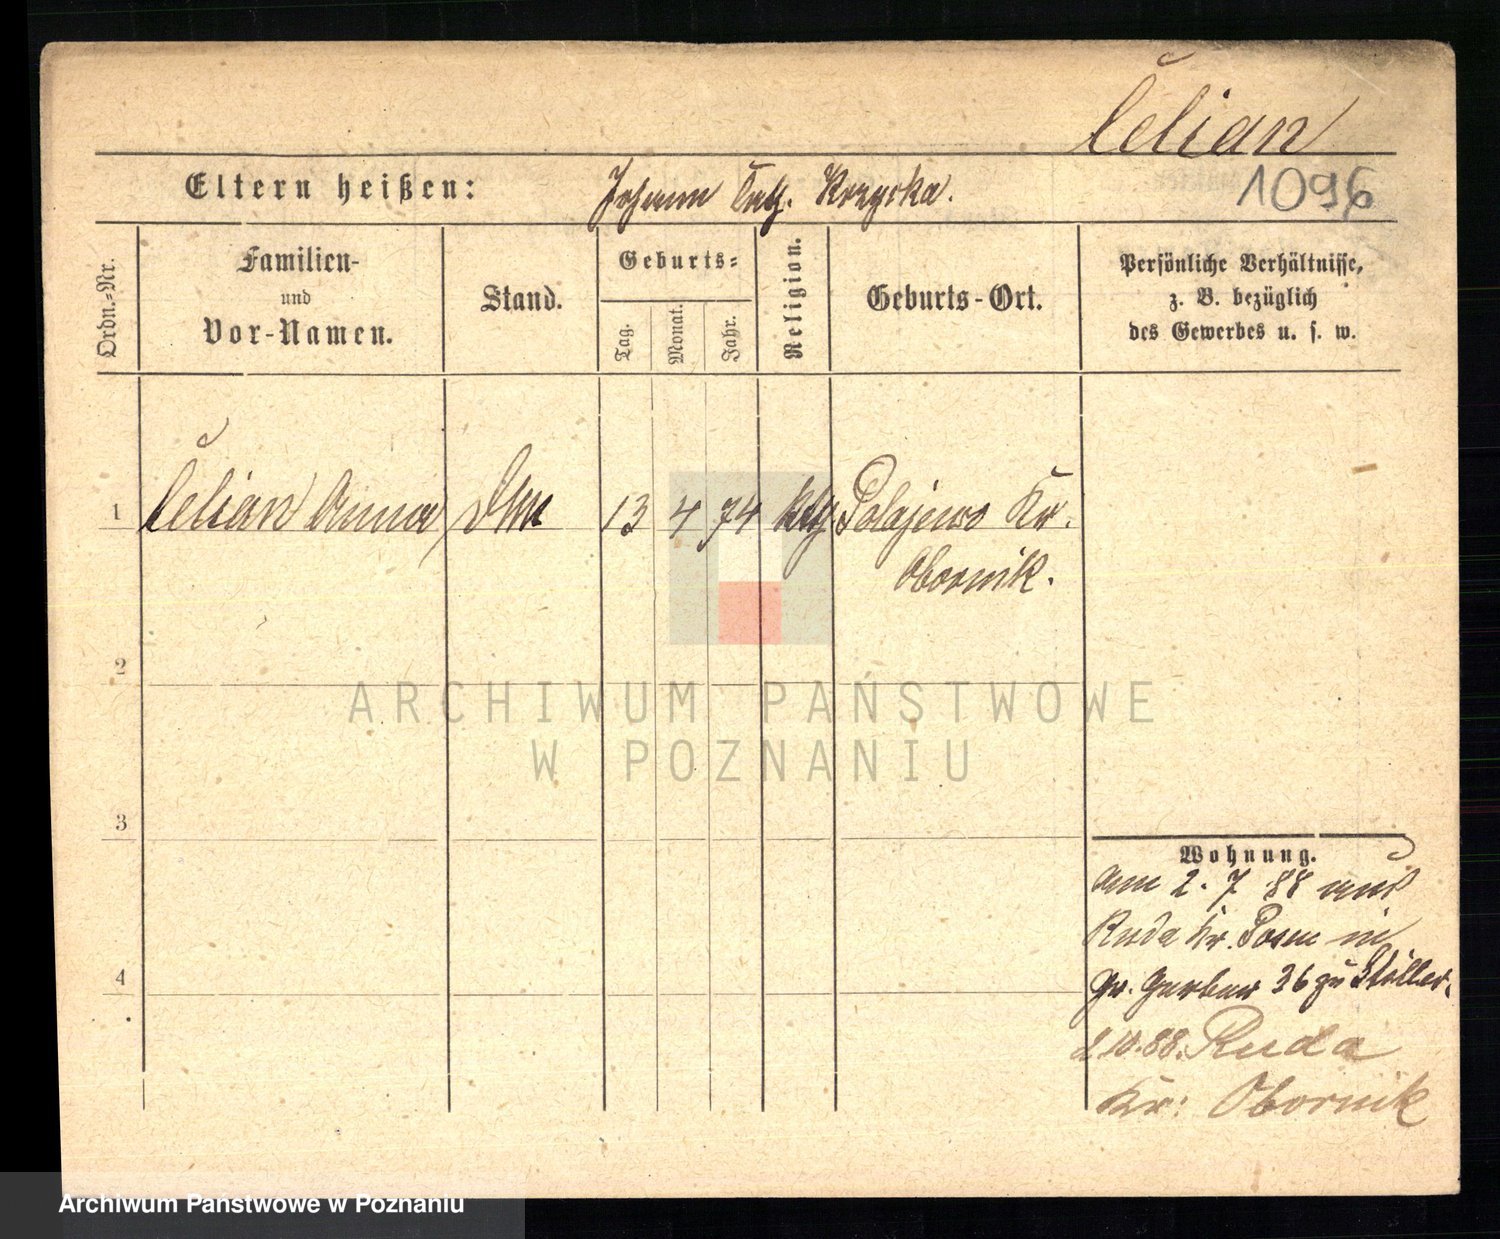 Čelian
Eltern heißen: Johann Cath. Krzyska.
1096
Ordn.-Nr.
Familien-
und
Vor-Namen.
Stand.
Geburts-
Tag.
Monat.
Jahr.
Religion.
Geburts-Ort.
Persönliche Verhältnisse,
z. B. bezüglich
des Gewerbes u. s. w.
1 Čelian Anna 13 4 74 kth Polajewo Kr.
Obornik.
2
3
4
Wohnung.
am 2. 7 88 aus
Ruda Kr. Posen in
Gr. Gerber 36 zu
2 10. 88. Ruda
Kr: Obornik
ARCHIWUM PAŃSTWOWE
W POZNANIU
Archiwum Państwowe w Poznaniu